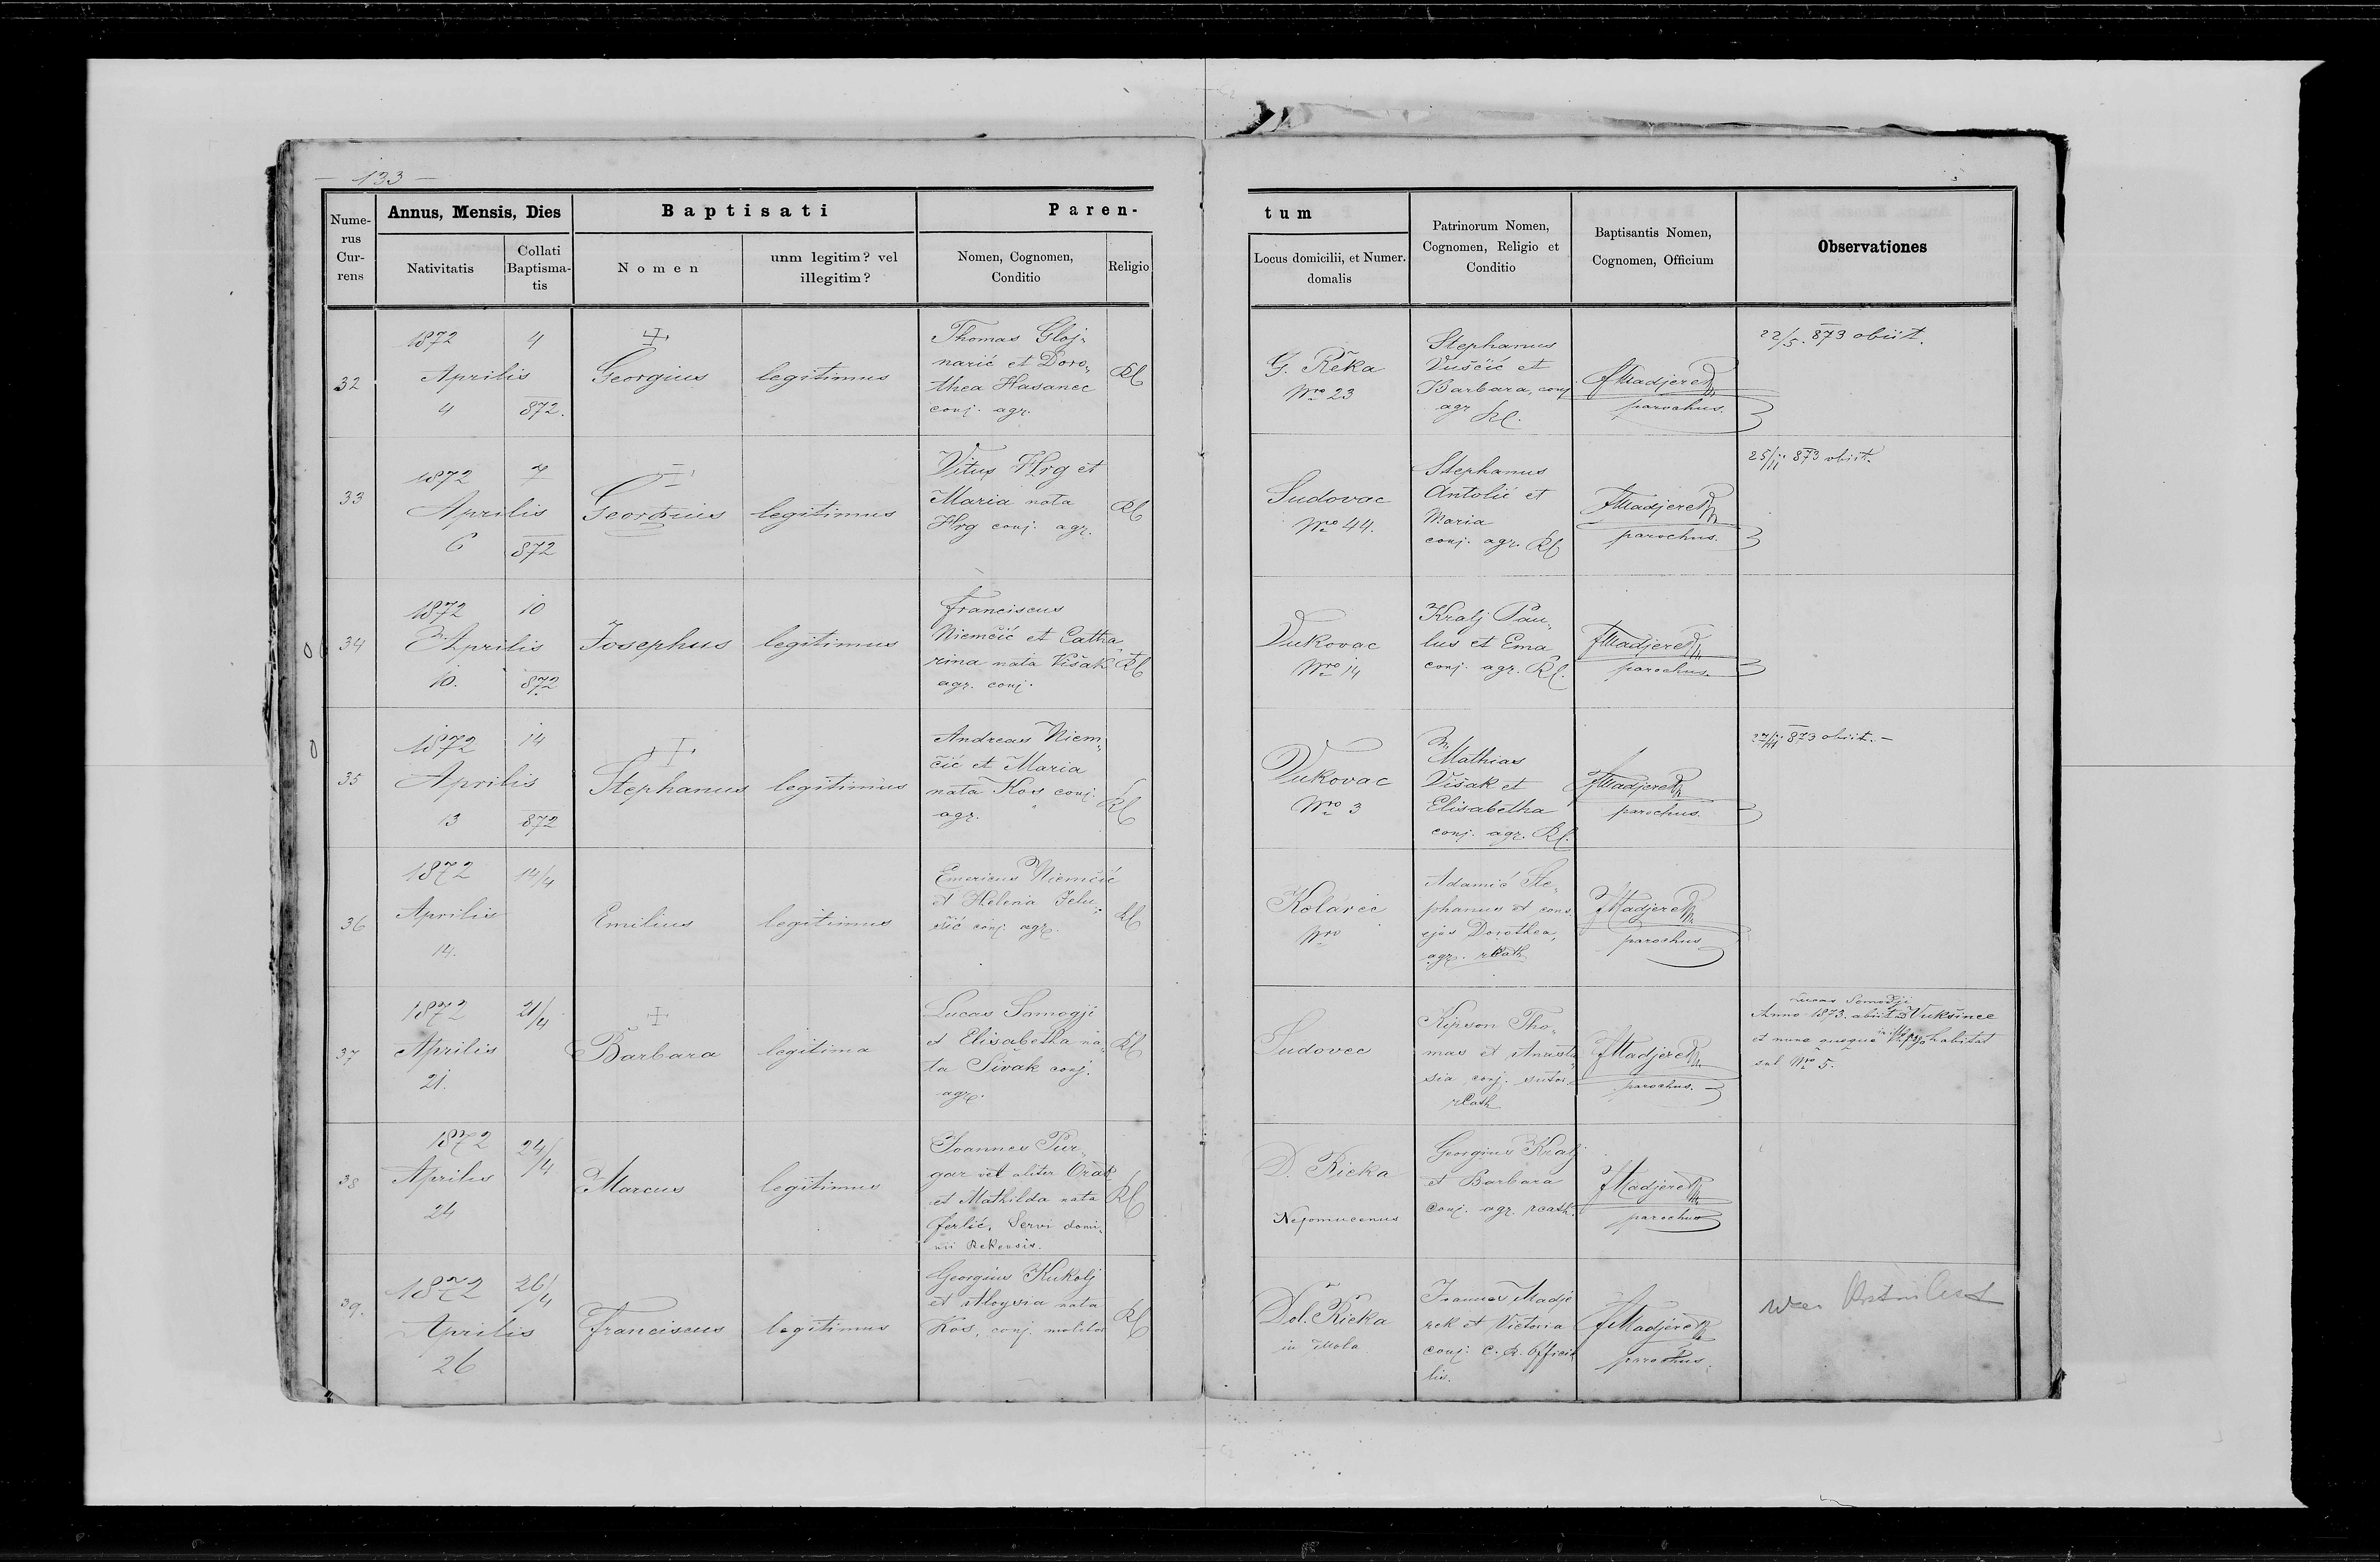 — 133 —
Nume-
rus
Cur-
rens
Annus, Mensis, Dies
Nativitatis
Collati
Baptisma-
tis
Baptisati
Nomen
unm legitim? vel
illegitim?
Paren-
Nomen, Cognomen,
Conditio
Religio
tum
Locus domicilii, et Numer.
domalis
Patrinorum Nomen,
Cognomen, Religio et
Conditio
Baptisantis Nomen,
Cognomen, Officium
Observationes
32
1872
Aprilis
4
4
872.
Georgius
legitimus
Thomas Gloj-
narić et Doro-
thea Hasanec
conj. agr.
RC
G. Rĕka
Nro 23
Stephanus
Vuščić et
Barbara, conj.
agr RC.
FMadjerek
parochus.
22/5. 873 obiit.
33
1872
Aprilis
6
7
872
Georgius
legitimus
Vitus Hrg et
Maria nata
Hrg conj. agr.
RC
Sudovac
Nro 44.
Stephanus
Antolić et
Maria
conj. agr. RC
FMadjerek
parochus.
25/11 873 obiit.
34
1872
Aprilis
10.
10
872
Josephus
legitimus
Franciscus
Niemčić et Catha-
rina nata Višak
agr. conj.
RC
Vukovac
Nro 14
Kralj Pau-
lus et Ema
conj. agr. RC.
FMadjerek
parochus.
35
1872
Aprilis
13
14
872
Stephanus
legitimus
Andreas Niem-
čić et Maria
nata Kos conj.
agr.
RC
Vukovac
Nro 3
Mathias
Višak et
Elisabetha
conj. agr. RC.
FMadjerek
parochus.
873 obiit.—
36
1872
Aprilis
14.
14/4
Emilius
legitimus
Emericus Niemčić
et Helena Jelu-
šić conj. agr.
RC
Kolarec
Nro
Adamić Ste-
phanus et cons.
ejus Dorothea,
agr. rCath
FMadjerek
parochus
37
1872
Aprilis
21.
21/4
Barbara
legitima
Lucas Somogji
et Elisabetha na-
ta Sivak conj.
agr.
RC
Sudovec
Kipson Tho-
mas et Anasta-
sia conj. sutor
rCath
FMadjerek
parochus.
Lucas Somodji
Anno 1873. abiit Vukšinec
et nunc quoque habitat
sub Nro 5.
38
1872
Aprilis
24
24/4
Marcus
legitimus
Joannes Pur-
gar vel aliter Orač
et Mathilda nata
Ferlić, Servi domi-
nii Rekensis.
RC
D. Rieka
Nepomucenus
Georgius Kralj
et Barbara
conj. agr. rcath.
FMadjerek
parochus
39.
1872
Aprilis
26
26/4
Franciscus
legitimus
Georgius Kukolj
et Aloysia nata
Kos, conj. molitor
RC
Dol. Rieka
in Mola
Joannes Madje
rek et Victoria
conj. C. R. Officia
lis.
FMadjerek
parochus.